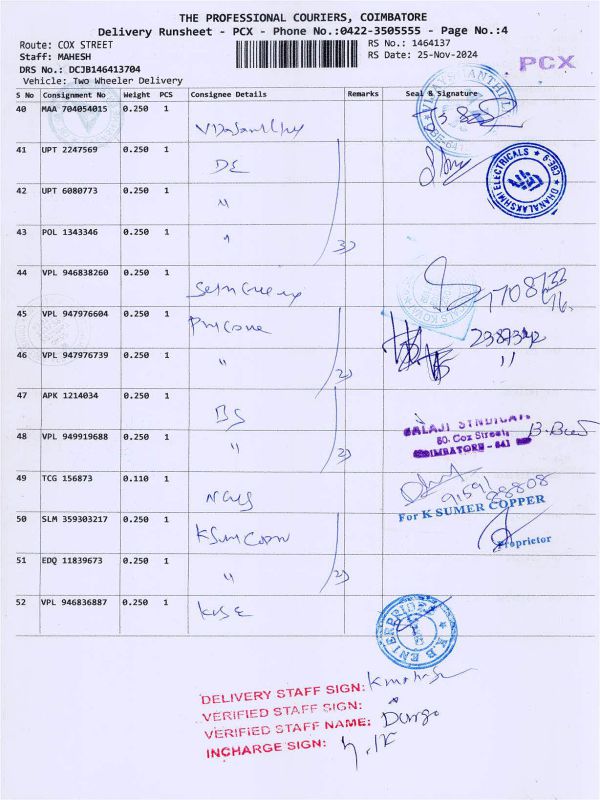 THE PROFESSIONAL COURIERS, COIMBATORE
Delivery Runsheet - PCX - Phone No.:0422-3505555 - Page No.:4
Route: COX STREET
RS No.: 1464137
Staff: MAHESH
RS Date: 25-Nov-2024
PCX
DRS No.: DCJB146413704
Vehicle: Two Wheeler Delivery
S No Consignment No Weight PCS Consignee Details Remarks Seal & Signature
40 MAA 704054015 0.250 1
41 UPT 2247569 0.250 1 DE
DHANALAKSHMI ELECTRICALS ★ CBE-9 ★
42 UPT 6080773 0.250 1 "
43 POL 1343346 0.250 1 " 3)
44 VPL 946838260 0.250 1
45 VPL 947976604 0.250 1
46 VPL 947976739 0.250 1 " 2) "
47 APK 1214034 0.250 1 BS
BALAJI SYNDICATE
80, Cox Street,
COIMBATORE - 641
48 VPL 949919688 0.250 1 " 2)
49 TCG 156873 0.110 1
91591 88808
For K SUMER COPPER
Proprietor
50 SLM 359303217 0.250 1 K Sum Copper
51 EDQ 11839673 0.250 1 " 2)
52 VPL 946836887 0.250 1 KBE
K.B ENTERPRIDES
DELIVERY STAFF SIGN:
VERIFIED STAFF SIGN:
VERIFIED STAFF NAME: Durga
INCHARGE SIGN: